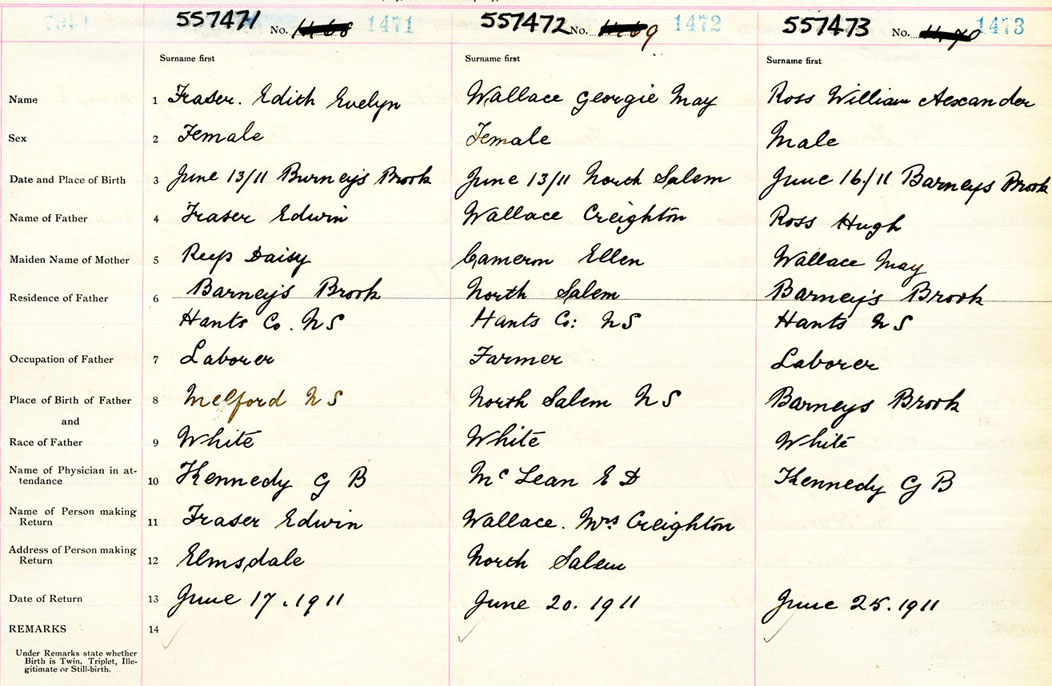 557471 No. 1468 1471 557472 No. 1469 1472 557473 No. 1470 1473
Surname first Surname first Surname first
Name 1 Fraser. Edith Evelyn Wallace Georgie May Ross William Alexander
Sex 2 Female Female Male
Date and Place of Birth 3 June 13/11 Burney's Brook June 13/11 North Salem June 16/11 Barneys Brook
Name of Father 4 Fraser Edwin Wallace Creighton Ross Hugh
Maiden Name of Mother 5 Daisy Cameron Ellen Wallace May
Residence of Father 6 Barney's Brook North Salem Barney's Brook
Hants Co. NS Hants Co: NS Hants NS
Occupation of Father 7 Laborer Farmer Laborer
Place of Birth of Father 8 Melford NS North Salem NS Barneys Brook
and
Race of Father 9 White White White
Name of Physician in at-
tendance 10 Kennedy G B McLean E D Kennedy G B
Name of Person making
Return 11 Fraser Edwin Wallace. Mrs Creighton
Address of Person making
Return 12 Elmsdale North Salem
Date of Return 13 June 17. 1911 June 20. 1911 June 25. 1911
REMARKS 14
Under Remarks state whether
Birth is Twin, Triplet, Ille-
gitimate or Still-birth.